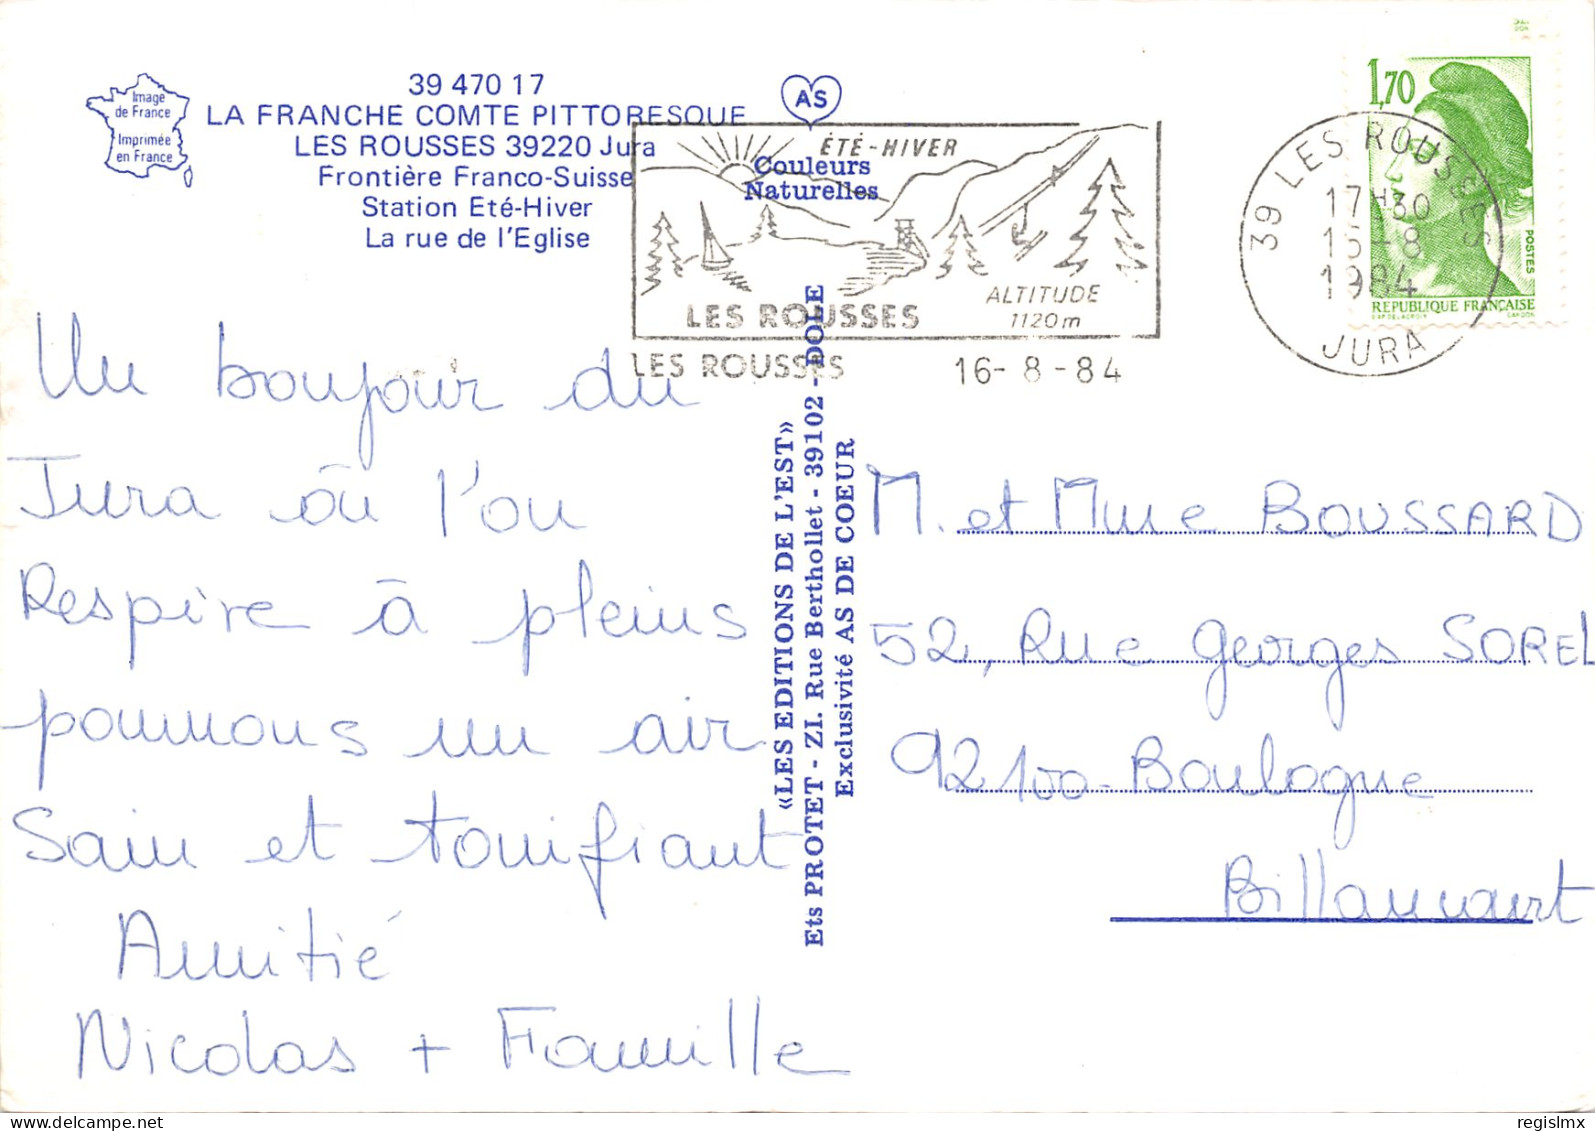 39 470 17
LA FRANCHE COMTE PITTORESQUE
LES ROUSSES 39220 Jura
Frontière Franco-Suisse
Station Eté-Hiver
La rue de l'Eglise
Image
de France
Imprimée
en France
AS
Couleurs
Naturelles
ÉTÉ-HIVER
ALTITUDE
1120m
LES ROUSSES
LES ROUSSES 16-8-84
1,70
POSTES
REPUBLIQUE FRANÇAISE
39 LES ROUSSES
17H30
1984
JURA
Un boujour du
Jura ōu l'on
Respire ā pleins
poumons un air
Sain et tonifiant
Amitié
Nicolas + Famille
«LES EDITIONS DE L'EST»
Ets PROTET - ZI. Rue Berthollet - 39102 - DOLE
Exclusivité AS DE COEUR
M. et Mme BOUSSARD
52, Rue Georges SOREL
92100 - Boulogne
Billancourt
delcampe.net
regislmx